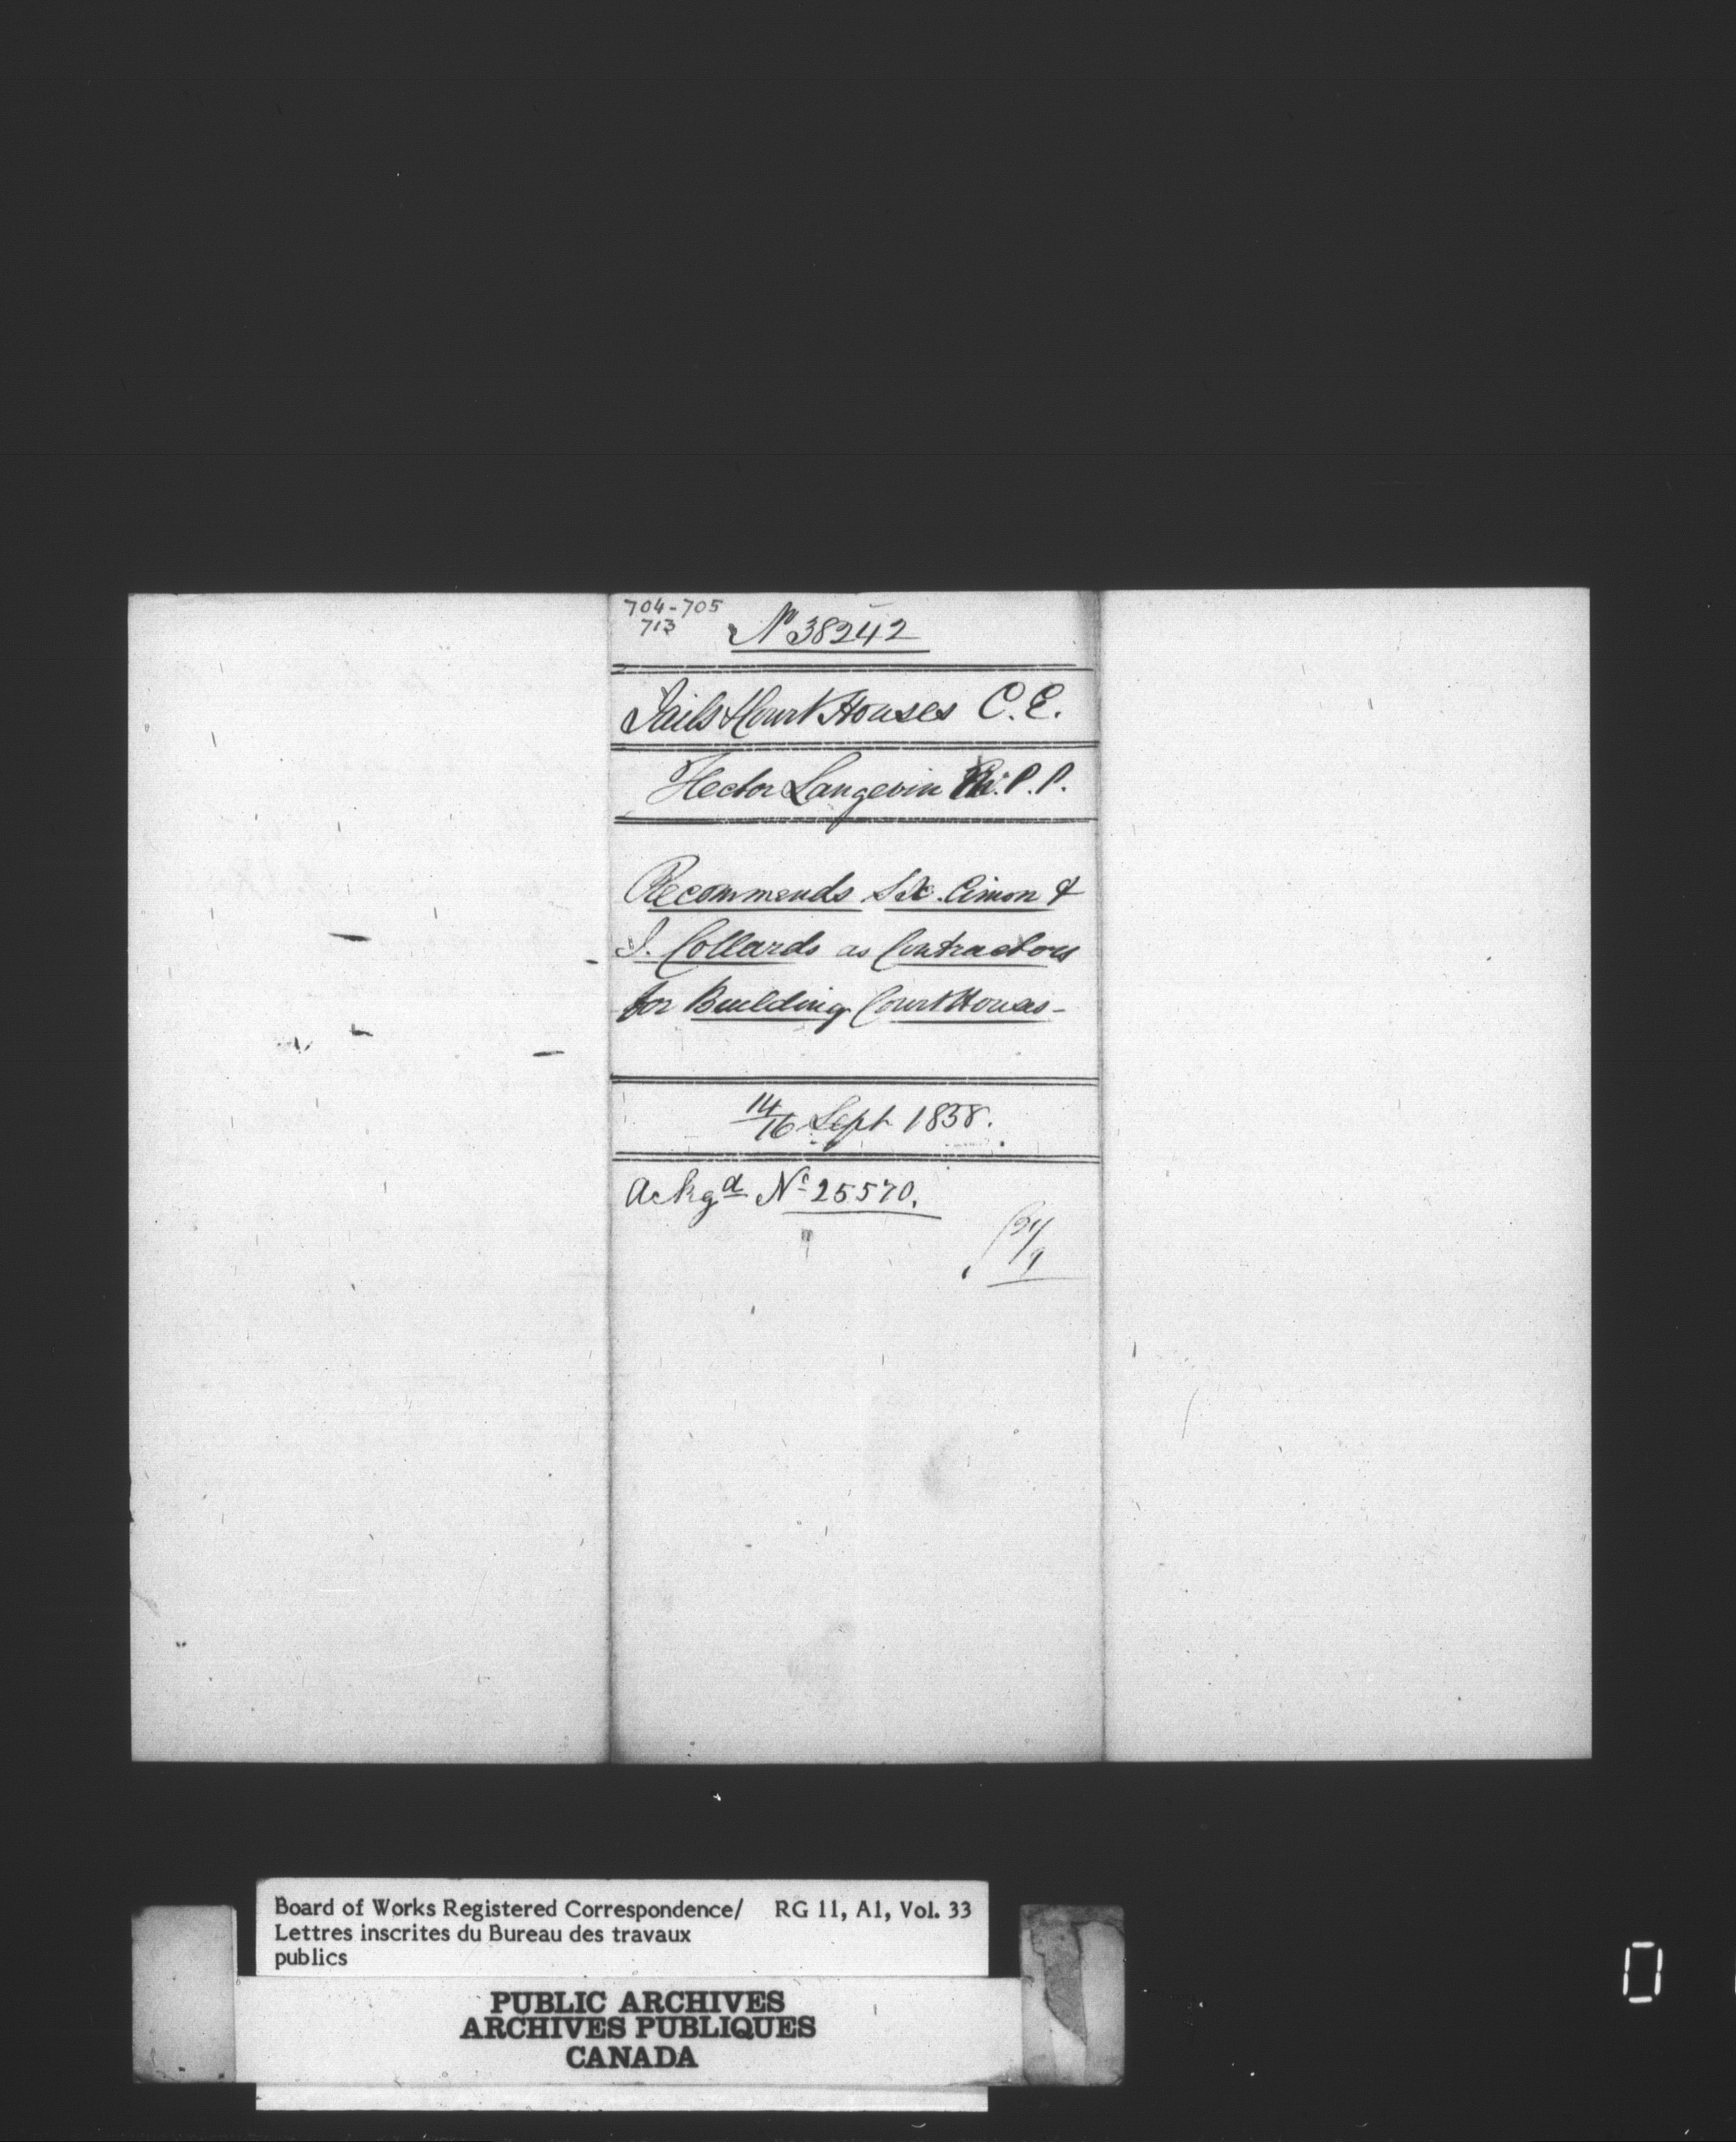 704-705
713
No 38242
Jails & Court Houses C. E.
Hector Langevin M. P. P.
Recommends S X. Cimon &
J. Collards as Contractors
for Building Court Houses -
14/16 Sept 1858.
Ackgd No 25570.
21/9
Board of Works Registered Correspondence/ RG 11, A1, Vol. 33
Lettres inscrites du Bureau des travaux
publics
PUBLIC ARCHIVES
ARCHIVES PUBLIQUES
CANADA
0